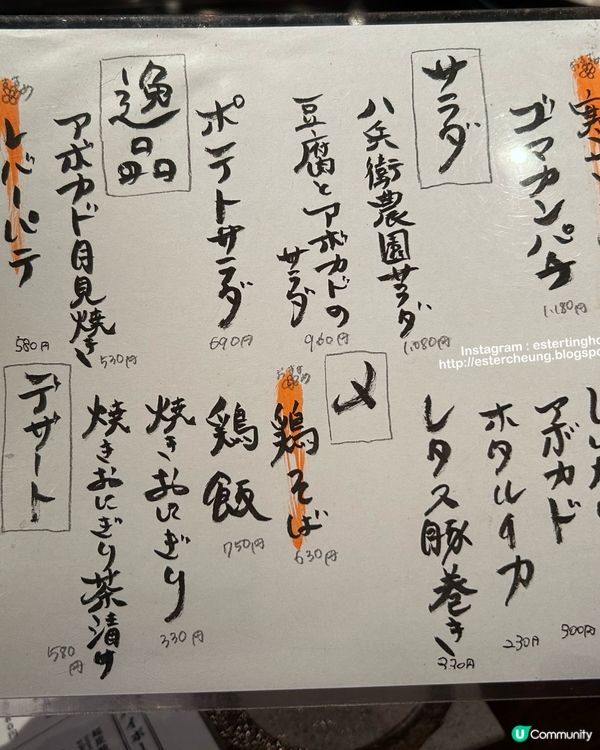 ゴマカンパチ
1.180円
サラダ
八兵衛農園サラダ
1.080円
豆腐とアボカドの
サラダ
960円
ポテトサラダ
690円
逸品
アボカド目見焼き
530円
おすすめ
レバーパテ
580円
アボカド
300円
ホタルイカ
230円
レタス豚巻き
330円
〆
おすすめ
鶏そば
630円
鶏飯
750円
焼きおにぎり
330円
焼きおにぎり茶漬け
580円
デザート
Instagram : estertingho
http://estercheung.blogspo
U Community